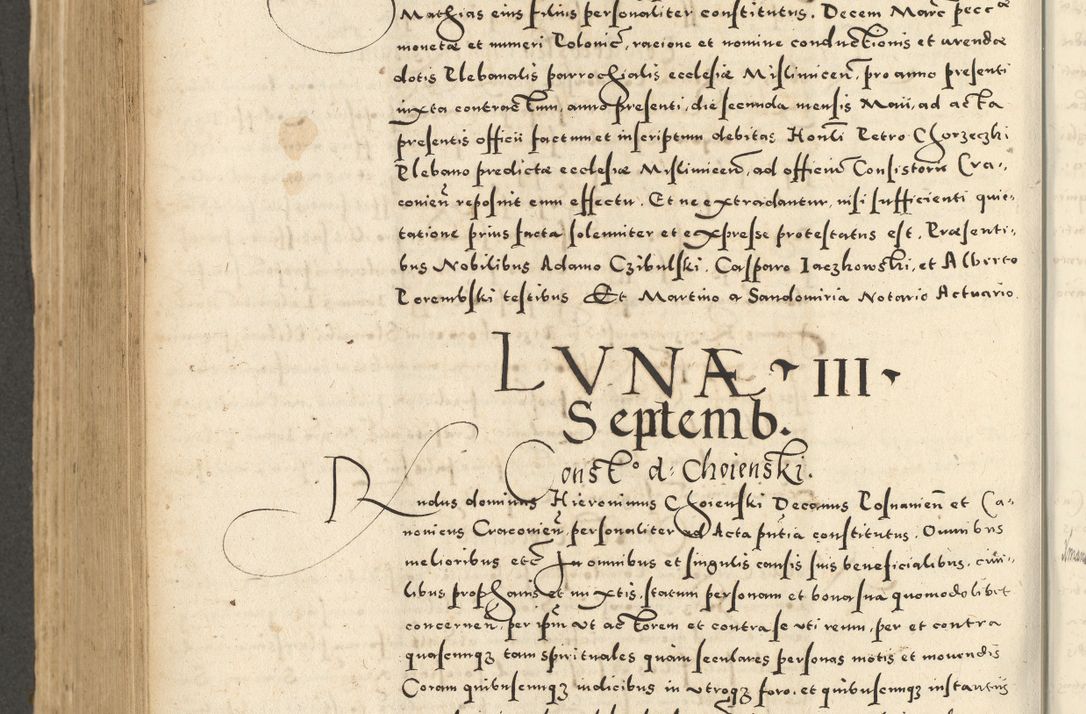 Mathias eius filius personaliter constitutus. Decem Marc pecc
monetæ et numeri Polonic, racione et nomine conductionis et arendæ
dotis Plebanalis parrochialis ecclesiæ Mislimicen, pro anno presenti
iuxta contractum, anno presenti, die secunda mensis Maii, ad acta
presentis officii factum et inscriptum debitas Honli Petro Chorzeczki
Plebano predictæ ecclesiæ Mislimicen, ad officiu Consistorii Cra-
conien reposuit cum effectu. Et ne extradantur, nisi sufficienti quie-
tatione prius facta solenniter et expresse protestatus est. Præsenti-
bus Nobilibus Adamo Czibulski. Casparo Iaczkowski, et Alberto
Porembski testibus Et Martino a Sandomiria Notario Actuario.
LVNÆ III
Septemb.
Const° d: Choienski.
Rndus dominus Hieronimus Choienski Decanus Posnanien et Ca-
nonicus Cracouien, personaliter ad Acta pntia constitutus. Omnibus
melioribus etc In omnibus et singulis causis suis beneficialibus, civi-
libus prophanis et mixtis, statum personam et bona sua quomodolibet
concernen, per ipm vt actorem et contra se vti reum, per et contra
quascunqz tam spirituales quam seculares personas motis et mouendis
Coram quibuscunqz iudicibus in vtroqz foro, et quibuscunqz instantiis